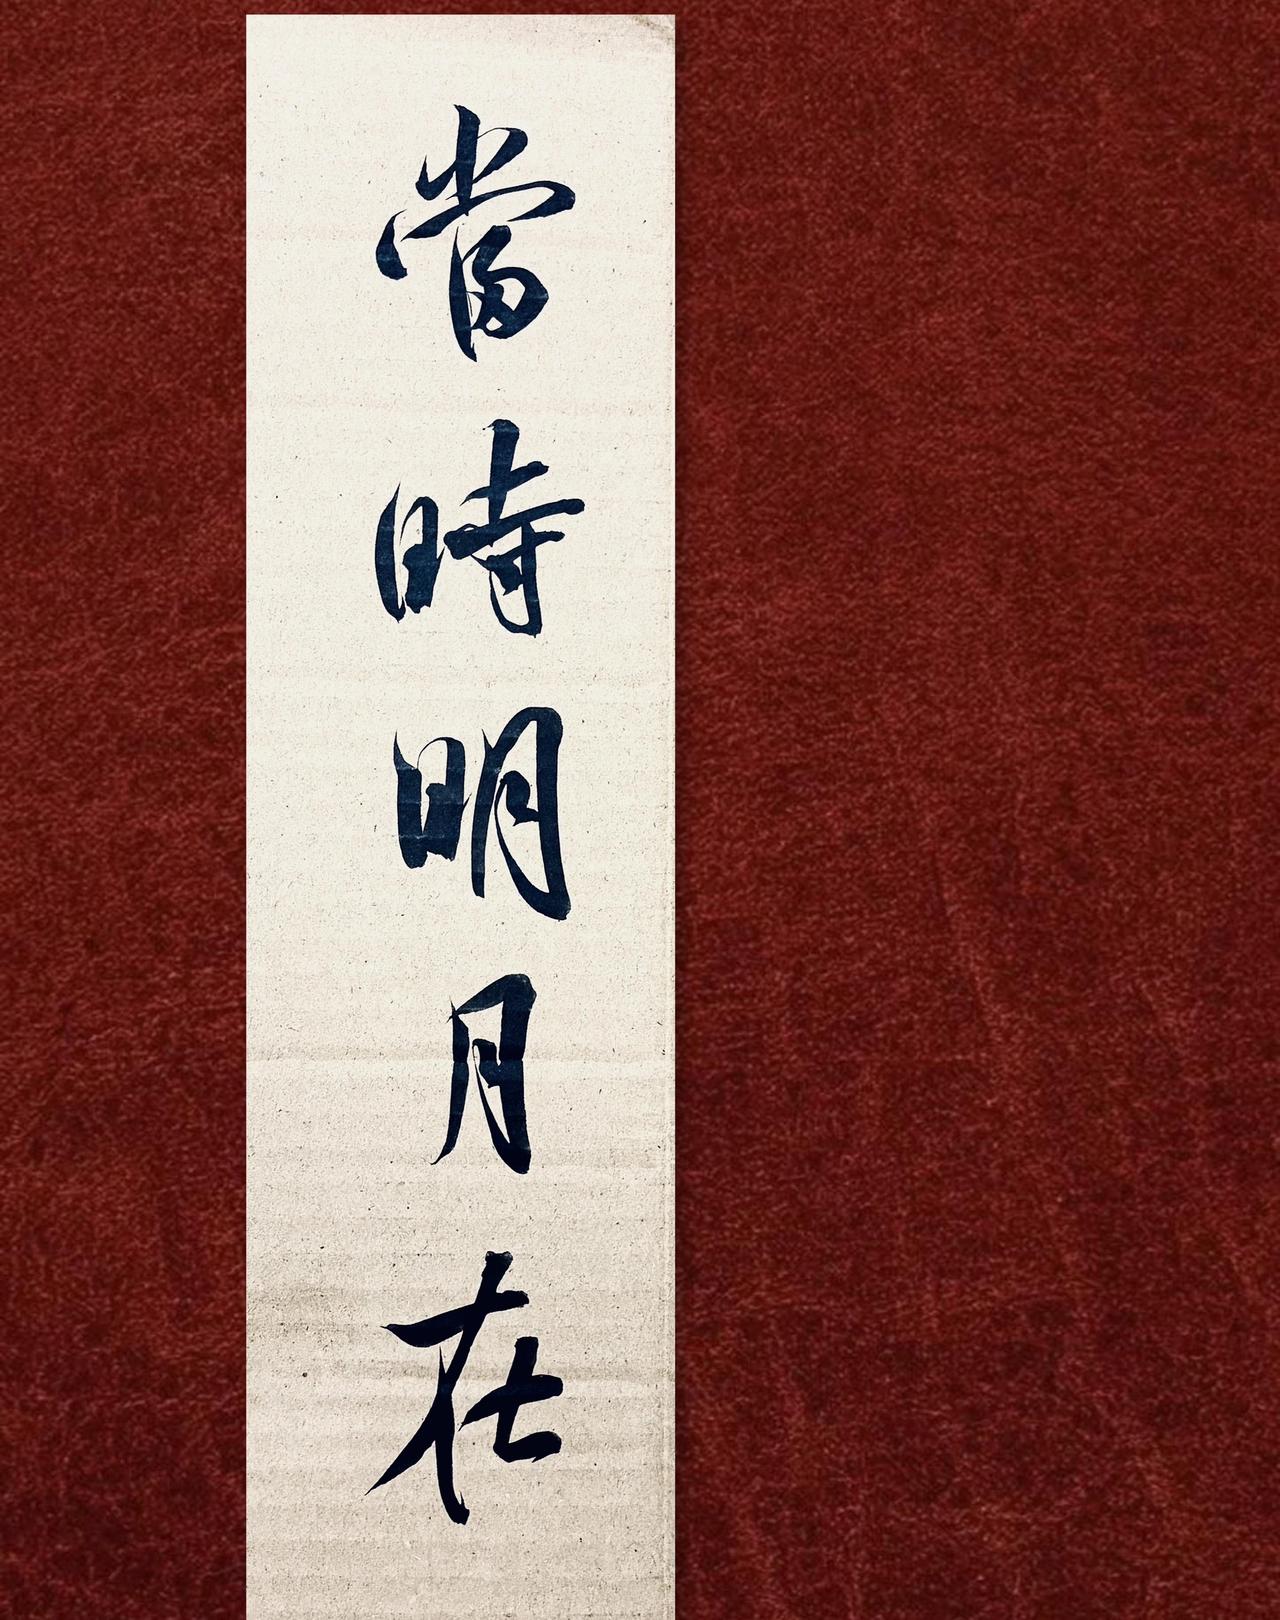 當時明月在